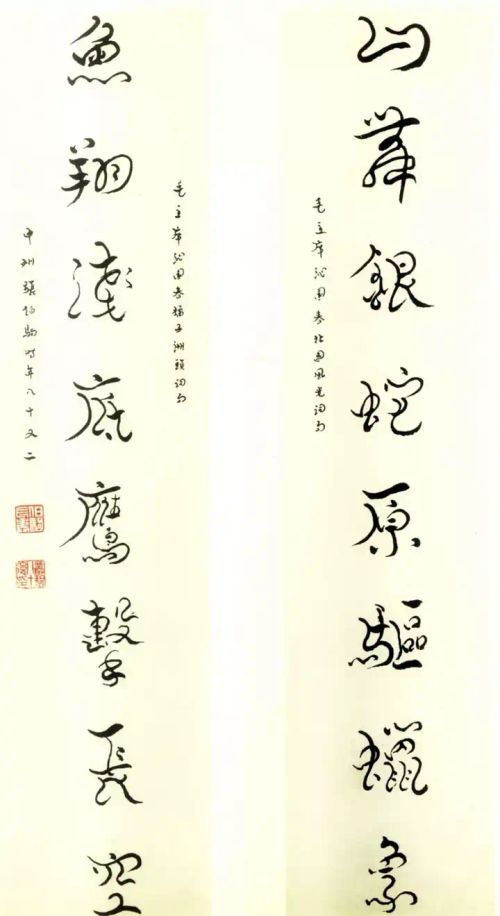 山舞銀蛇原驅蠟象
毛主席沁園春北國風光詞句
毛主席沁園春橘子洲頭詞句
魚翔淺底鷹擊長空
中州張伯駒時年八十又二